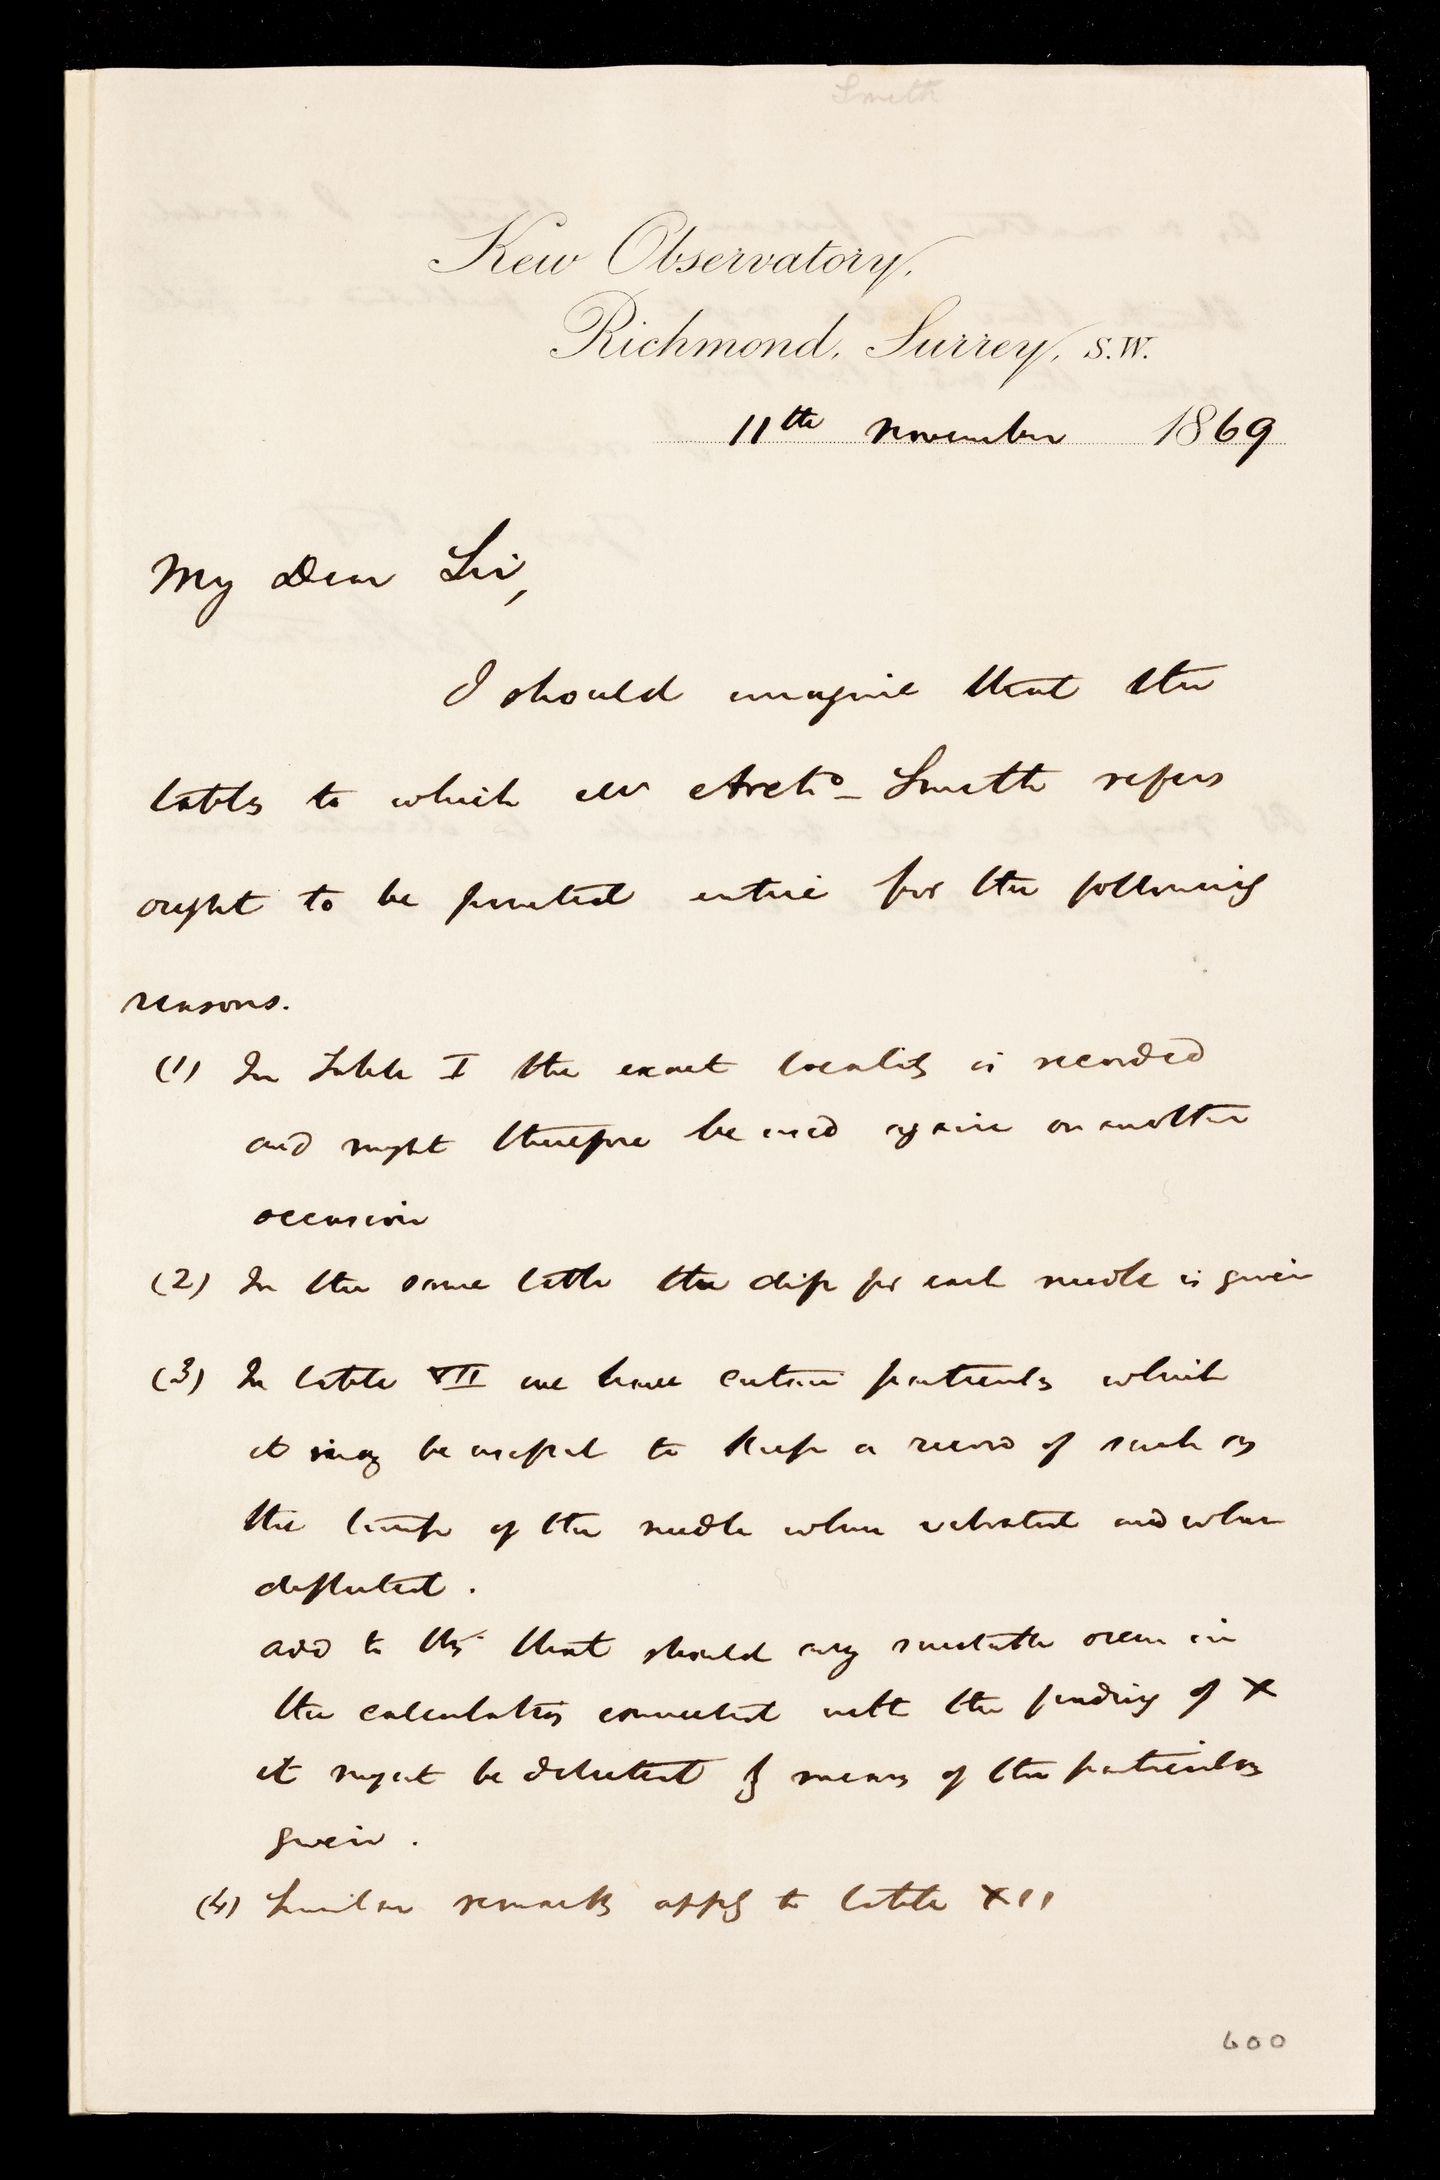 Smith
Kew Observatory,
Richmond, Surrey, S.W.
11th November 1869
My Dear Sir,
I should imagine that the
tables to which Mr Archd. Smith refers
ought to be printed entire for the following
reasons.
(1) In Table I the exact locality is recorded
and might therefore be used again on another
occasion
(2) In the same table the dip for each needle is given
(3) In table VII we have certain particulars which
it may be useful to keep a record of such as
the temp of the needle when vibrated and when
deflected.
add to this that should any mistake occur in
the calculations connected with the finding of X
it might be detected by means of the particulars
given.
(4) Similar remarks apply to table XII
600